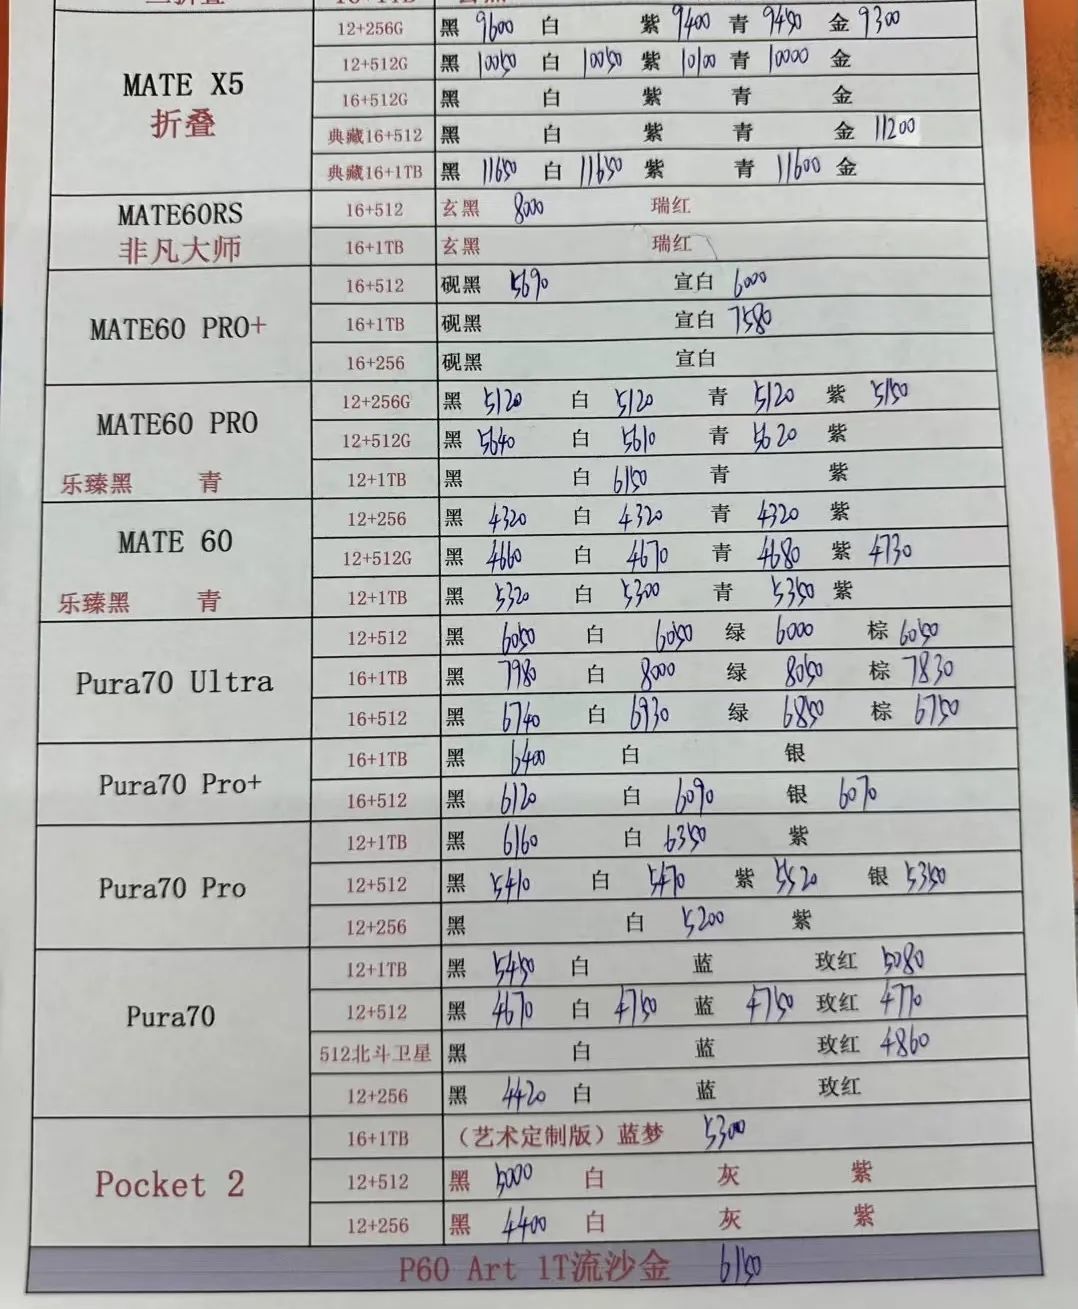 12+256G 黑 9600 白 紫 9400 青 9450 金 9300
MATE X5 12+512G 黑 10050 白 10050 紫 10100 青 10000 金
折叠 16+512G 黑 白 紫 青 金
典藏16+512 黑 白 紫 青 金 11200
典藏16+1TB 黑 11650 白 11650 紫 青 11600 金
MATE60RS 16+512 玄黑 8000 瑞红
非凡大师 16+1TB 玄黑 瑞红
16+512 砚黑 5690 宣白 6000
MATE60 PRO+ 16+1TB 砚黑 宣白 7580
16+256 砚黑 宣白
MATE60 PRO 12+256G 黑 5120 白 5120 青 5120 紫 5150
12+512G 黑 5640 白 5610 青 5620 紫
乐臻黑 青 12+1TB 黑 白 6150 青 紫
MATE 60 12+256 黑 4320 白 4320 青 4320 紫
12+512G 黑 4660 白 4670 青 4680 紫 4730
乐臻黑 青 12+1TB 黑 5320 白 5300 青 5350 紫
12+512 黑 6050 白 6050 绿 6000 棕 6050
Pura70 Ultra 16+1TB 黑 7980 白 8000 绿 8050 棕 7830
16+512 黑 6740 白 6930 绿 6850 棕 6750
Pura70 Pro+ 16+1TB 黑 6400 白 银
16+512 黑 6120 白 6090 银 6070
12+1TB 黑 6160 白 6350 紫
Pura70 Pro 12+512 黑 5410 白 5470 紫 5520 银 5350
12+256 黑 白 5200 紫
12+1TB 黑 5450 白 蓝 玫红 5080
Pura70 12+512 黑 4670 白 4750 蓝 4750 玫红 4770
512北斗卫星 黑 白 蓝 玫红 4860
12+256 黑 4420 白 蓝 玫红
16+1TB （艺术定制版）蓝梦 5300
Pocket 2 12+512 黑 5000 白 灰 紫
12+256 黑 4400 白 灰 紫
P60 Art 1T流沙金 6150